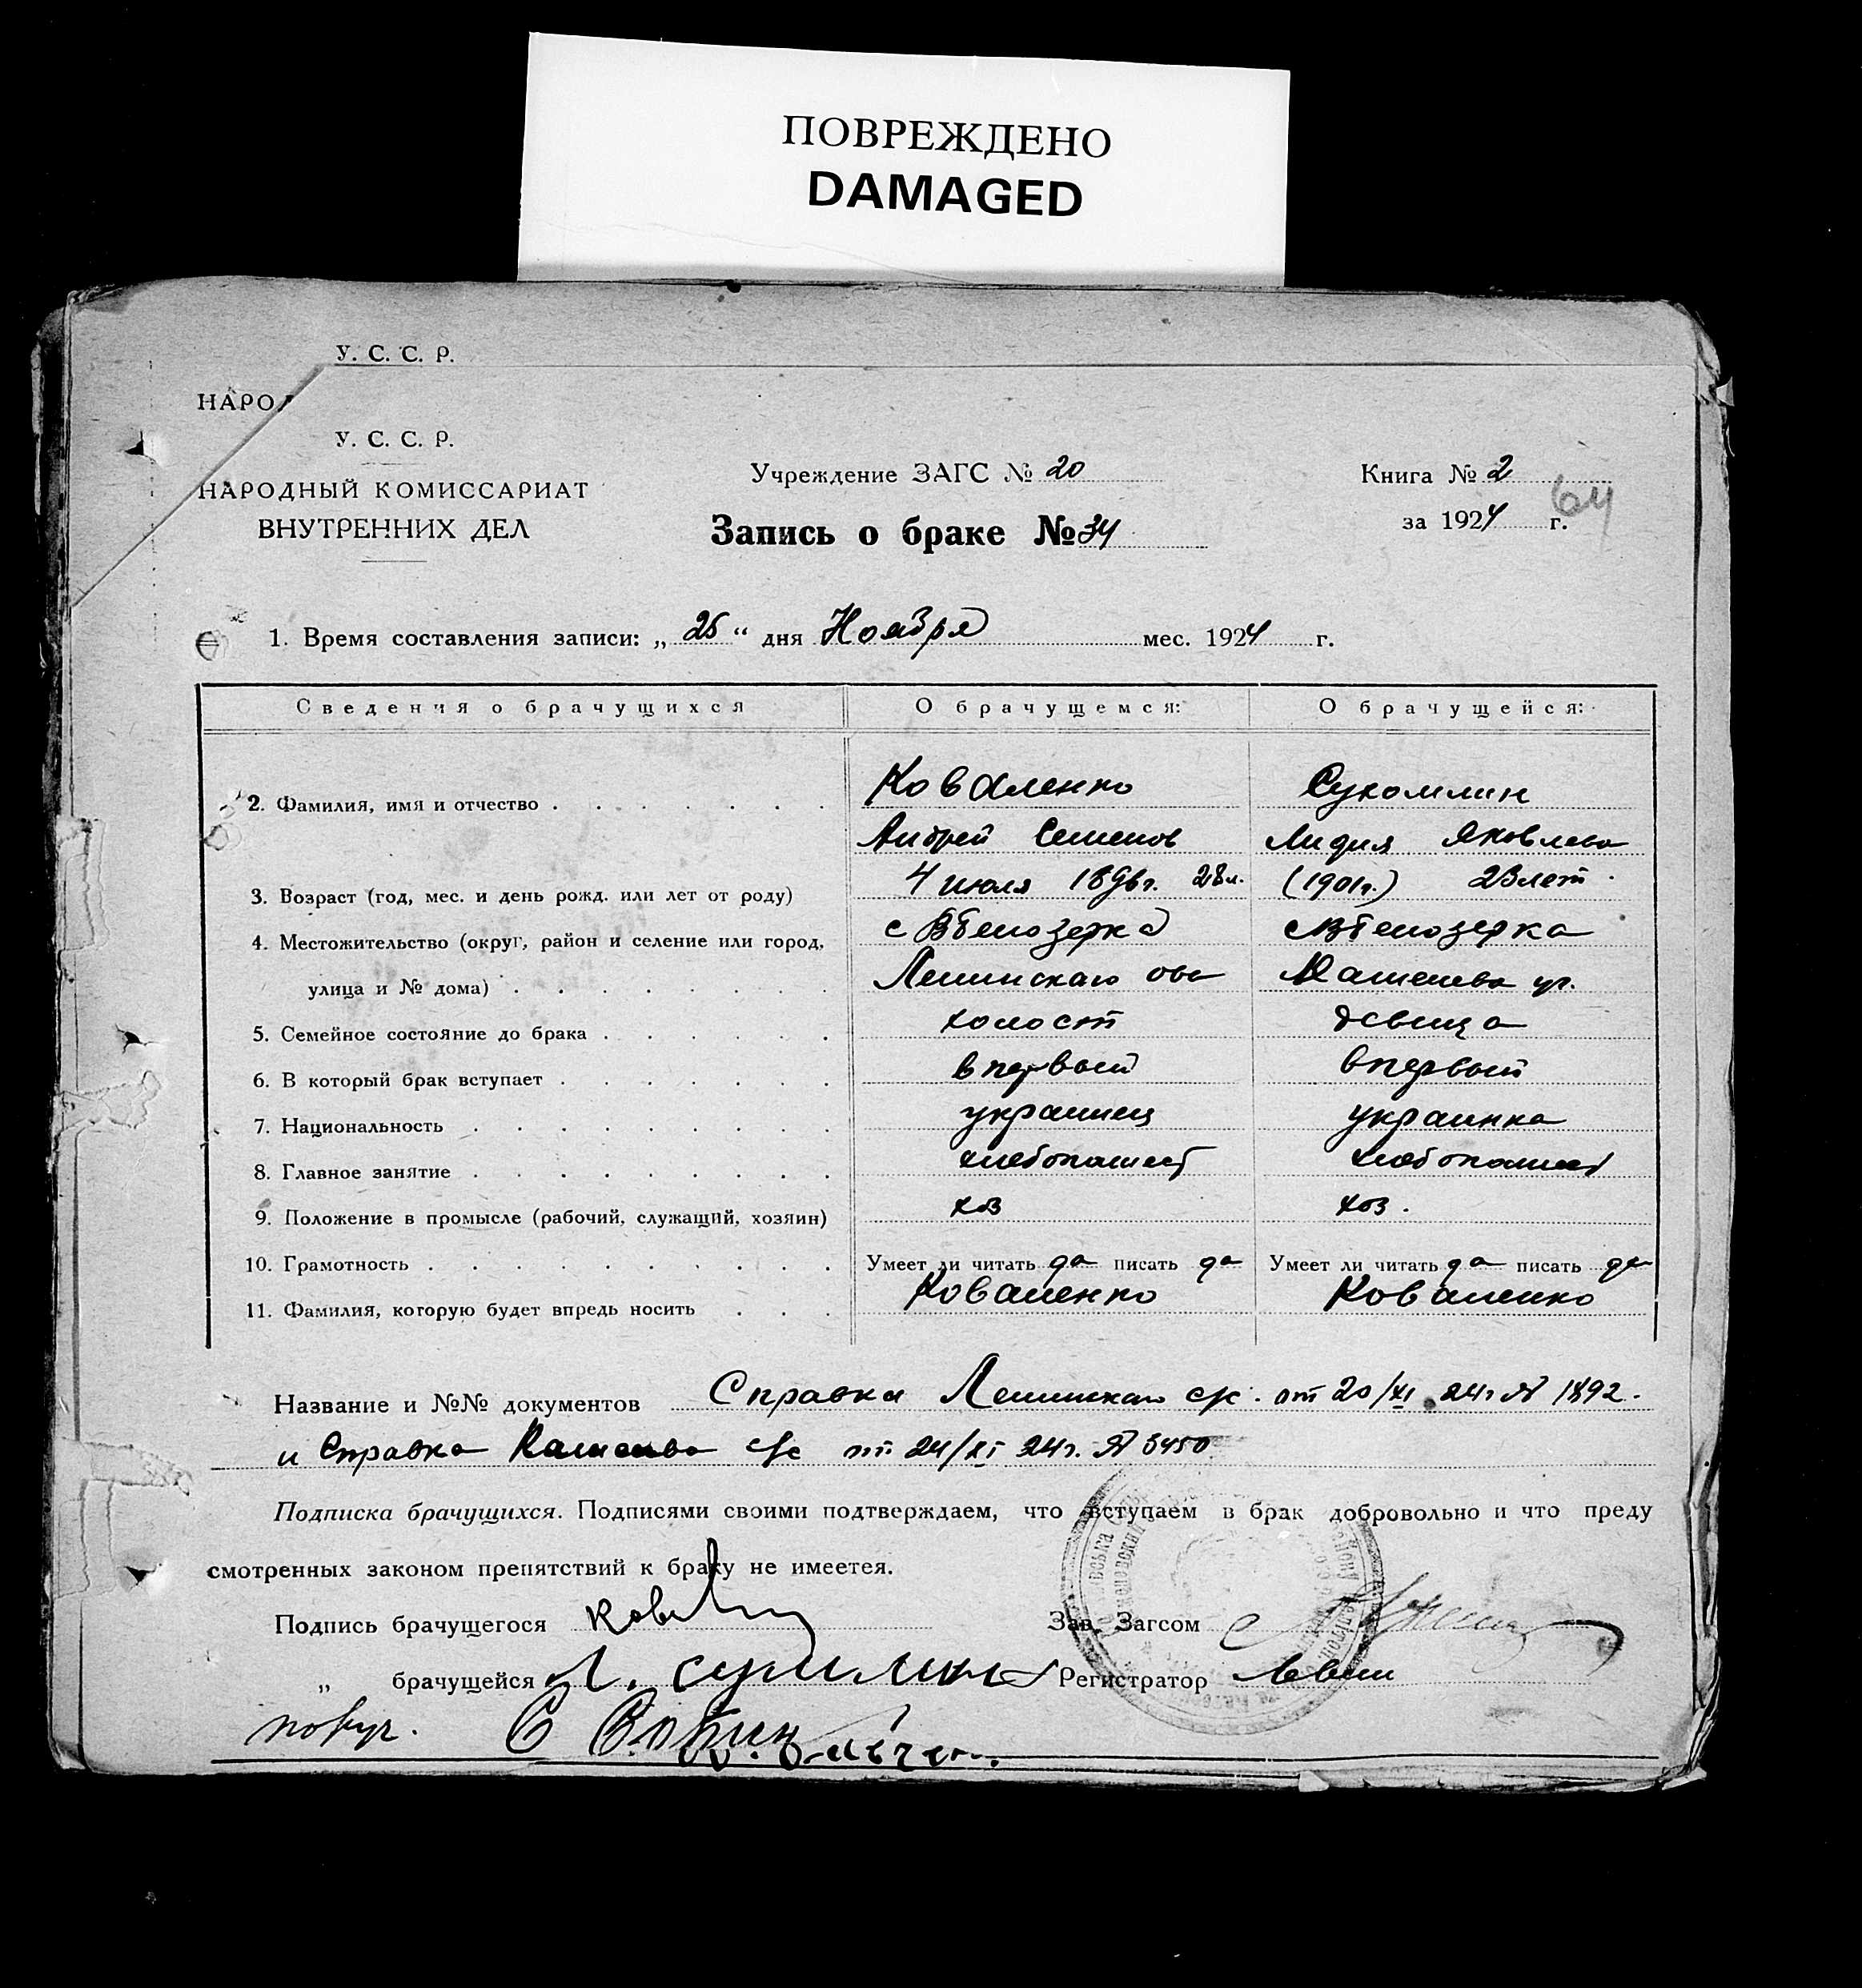 ПОВРЕЖДЕНО
DAMAGED
У. С. С. Р.
НАРОД
У. С. С. Р.
НАРОДНЫЙ КОМИССАРИАТ
ВНУТРЕННИХ ДЕЛ
Учреждение ЗАГС № 20
Книга № 2
64
за 1924 г.
Запись о браке № 34
1. Время составления записи: „ 25 “ дня Ноября мес. 1924 г.
Сведения о брачущихся О брачущемся: О брачущейся:
2. Фамилия, имя и отчество Коваленко Сухомлин
Андрей Семенов Лидия Яковлева
3. Возраст (год, мес. и день рожд. или лет от роду) 4 июля 1896г. 28л. (1901г.) 23 лет
4. Местожительство (округ, район и селение или город, с Вбелозерка с Вбелозерка
улица и № дома) Ленинскаго
5. Семейное состояние до брака холост девица
6. В который брак вступает впервый впервый
7. Национальность украинец украинка
8. Главное занятие хлебопашест хлебопашест
9. Положение в промысле (рабочий, служащий, хозяин) хоз хоз.
10. Грамотность Умеет ли читать да писать да Умеет ли читать да писать да
11. Фамилия, которую будет впредь носить Коваленко Коваленко
Название и №№ документов Справка Ленинскаго с/с. от 20/XI 24г № 1892.
и Справка с/с от 24/XI 24г. № 3450
Подписка брачущихся. Подписями своими подтверждаем, что вступаем в брак добровольно и что преду
смотренных законом препятствий к браку не имеется.
Подпись брачущегося Зав. Загсом
„ брачущейся Л. Регистратор